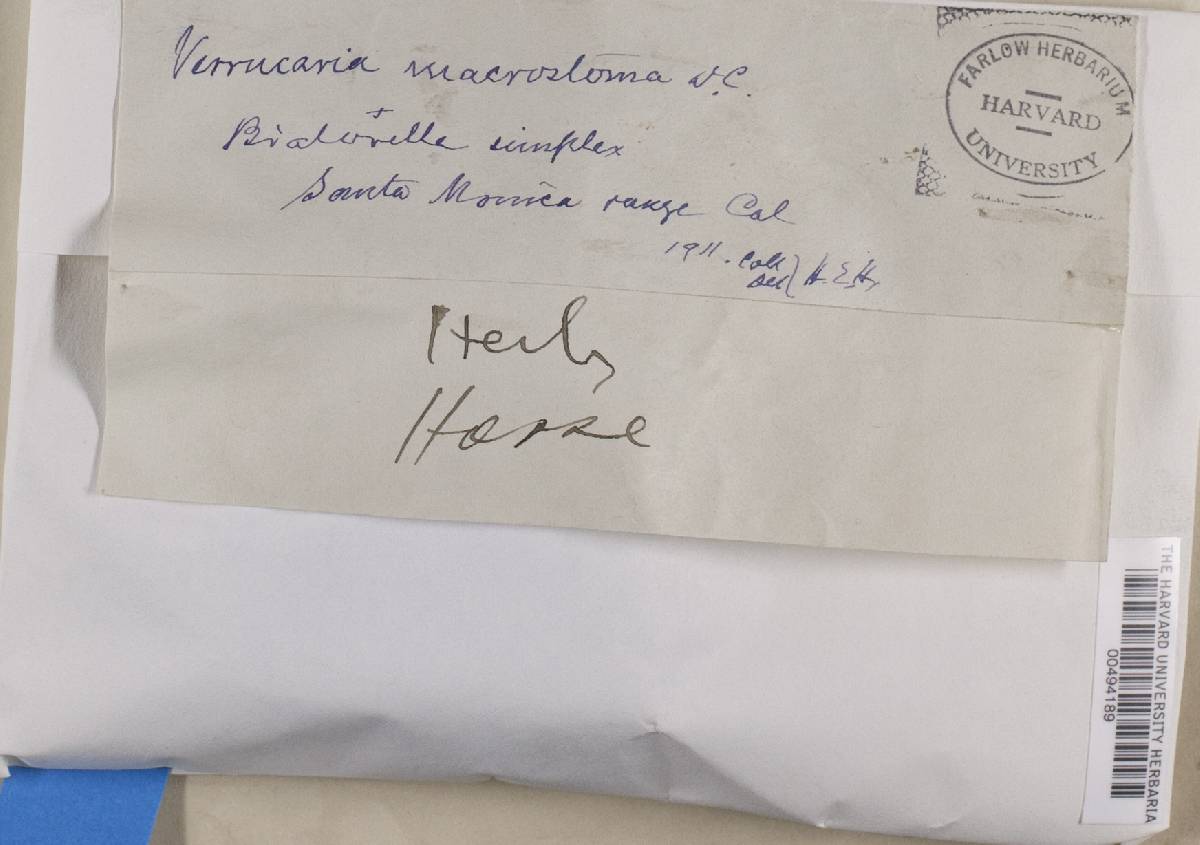 Verrucaria macrostoma D.C.
+
Biatorella simplex
Santa Monica range Cal
1911. Coll
Det } H.E.H.
Herb
Hasse
FARLOW HERBARIUM
HARVARD
UNIVERSITY
THE HARVARD UNIVERSITY HERBARIA
00494189